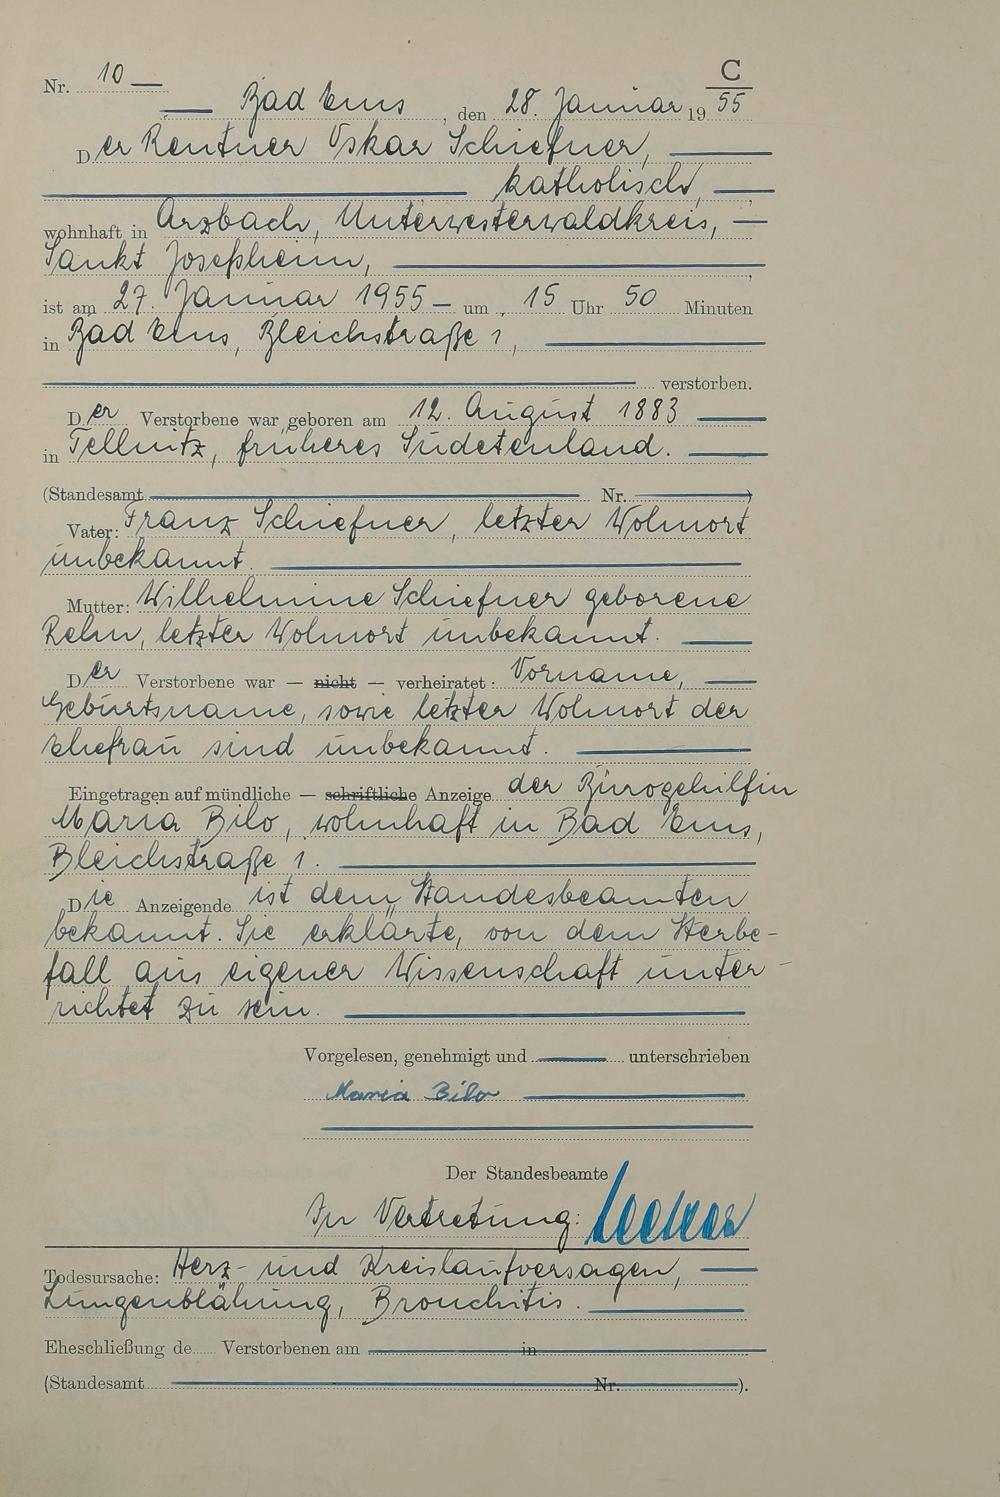 C
Nr. 10 —
— Bad Ems, den 28. Januar 19 55
Der Rentner Oskar Schiefner, —
— katholisch, —
wohnhaft in Arzbach, Unterwesterwaldkreis, —
Sankt Josefsheim, —
ist am 27. Januar 1955 — um 15 Uhr 50 Minuten
in Bad Ems, Bleichstraße 1, —
— verstorben.
Der Verstorbene war geboren am 12. August 1883 —
in Tellnitz, früheres Sudetenland. —
(Standesamt — Nr. —)
Vater: Franz Schiefner, letzter Wohnort
unbekannt. —
Mutter: Wilhelmine Schiefner geborene
Rehn, letzter Wohnort unbekannt. —
Der Verstorbene war — nicht — verheiratet: Vorname, —
Geburtsname, sowie letzter Wohnort der
Ehefrau sind unbekannt. —
Eingetragen auf mündliche — schriftliche Anzeige der Bürogehilfin
Maria Bilo, wohnhaft in Bad Ems,
Bleichstraße 1. —
Die Anzeigende ist dem Standesbeamten
bekannt. Sie erklärte, von dem Sterbe-
fall aus eigener Wissenschaft unter-
richtet zu sein. —
Vorgelesen, genehmigt und — unterschrieben
Maria Bilo —
Der Standesbeamte
In Vertretung:
Todesursache: Herz- und Kreislaufversagen, —
Lungenblähung, Bronchitis. —
Eheschließung de..... Verstorbenen am — in —
(Standesamt — Nr. —).